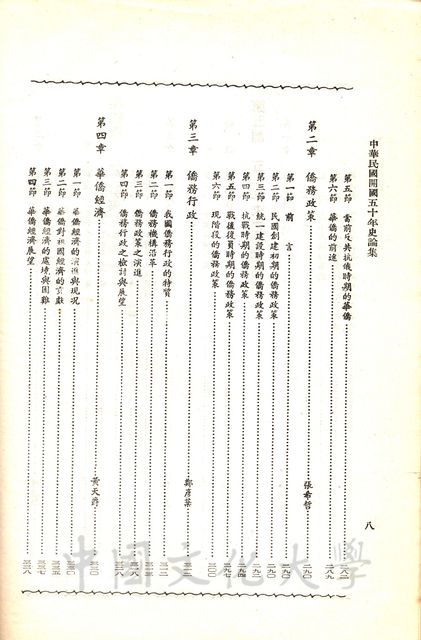 中華民國開國五十年史論集
八
第五節 當前反共抗俄時期的華僑 二八二
第六節 華僑的前途 二八九
第二章 僑務政策 張希哲 二九〇
第一節 前言 二九〇
第二節 民國創建初期的僑務政策 二九〇
第三節 統一建設時期的僑務政策
第四節 抗戰時期的僑務政策 二九四
第五節 戰後復員時期的僑務政策 二九七
第六節 現階段的僑務政策 三〇〇
第三章 僑務行政 鄭彥棻
第一節 我國僑務行政的特質
第二節 僑務機構沿革
第三節 僑務政策之演進
第四節 僑務行政之檢討與展望
第四章 華僑經濟 黃天爵 三三〇
第一節 華僑經濟的演進與現況 三三〇
第二節 華僑對祖國經濟的貢獻 三三五
第三節 華僑經濟的處境與困難 三三七
第四節 華僑經濟展望 三三八
中國文化大學